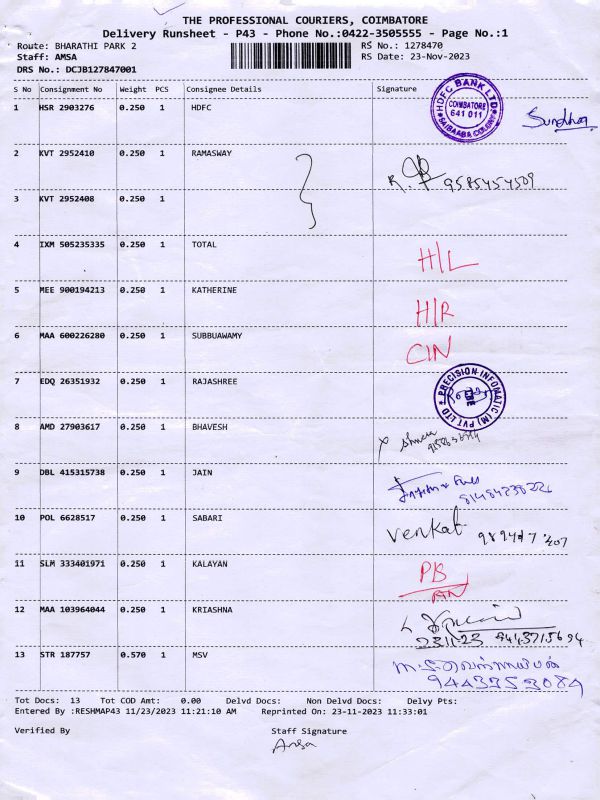 THE PROFESSIONAL COURIERS, COIMBATORE
Delivery Runsheet - P43 - Phone No.:0422-3505555 - Page No.:1
Route: BHARATHI PARK 2 RS No.: 1278470
Staff: AMSA RS Date: 23-Nov-2023
DRS No.: DCJB127847001
S No Consignment No Weight PCS Consignee Details Signature
1 HSR 2903276 0.250 1 HDFC
HDFC BANK LTD
COIMBATORE
641 011
SAIBAABA COLONY
2 KVT 2952410 0.250 1 RAMASWAY
R. 9585454509
3 KVT 2952408 0.250 1
4 IXM 505235335 0.250 1 TOTAL
H/L
5 MEE 900194213 0.250 1 KATHERINE
H/R
6 MAA 600226280 0.250 1 SUBBUAWAMY
CIN
7 EDQ 26351932 0.250 1 RAJASHREE
PRECISION INFOMATIC (M) PVT LTD
CBE
8 AMD 27903617 0.250 1 BHAVESH
9 DBL 415315738 0.250 1 JAIN
10 POL 6628517 0.250 1 SABARI
Venkat
11 SLM 333401971 0.250 1 KALAYAN
PB
12 MAA 103964044 0.250 1 KRIASHNA
23.11.23
13 STR 187757 0.570 1 MSV
9443353084
Tot Docs: 13 Tot COD Amt: 0.00 Delvd Docs: Non Delvd Docs: Delvy Pts:
Entered By :RESHMAP43 11/23/2023 11:21:10 AM Reprinted On: 23-11-2023 11:33:01
Verified By Staff Signature
Amsa